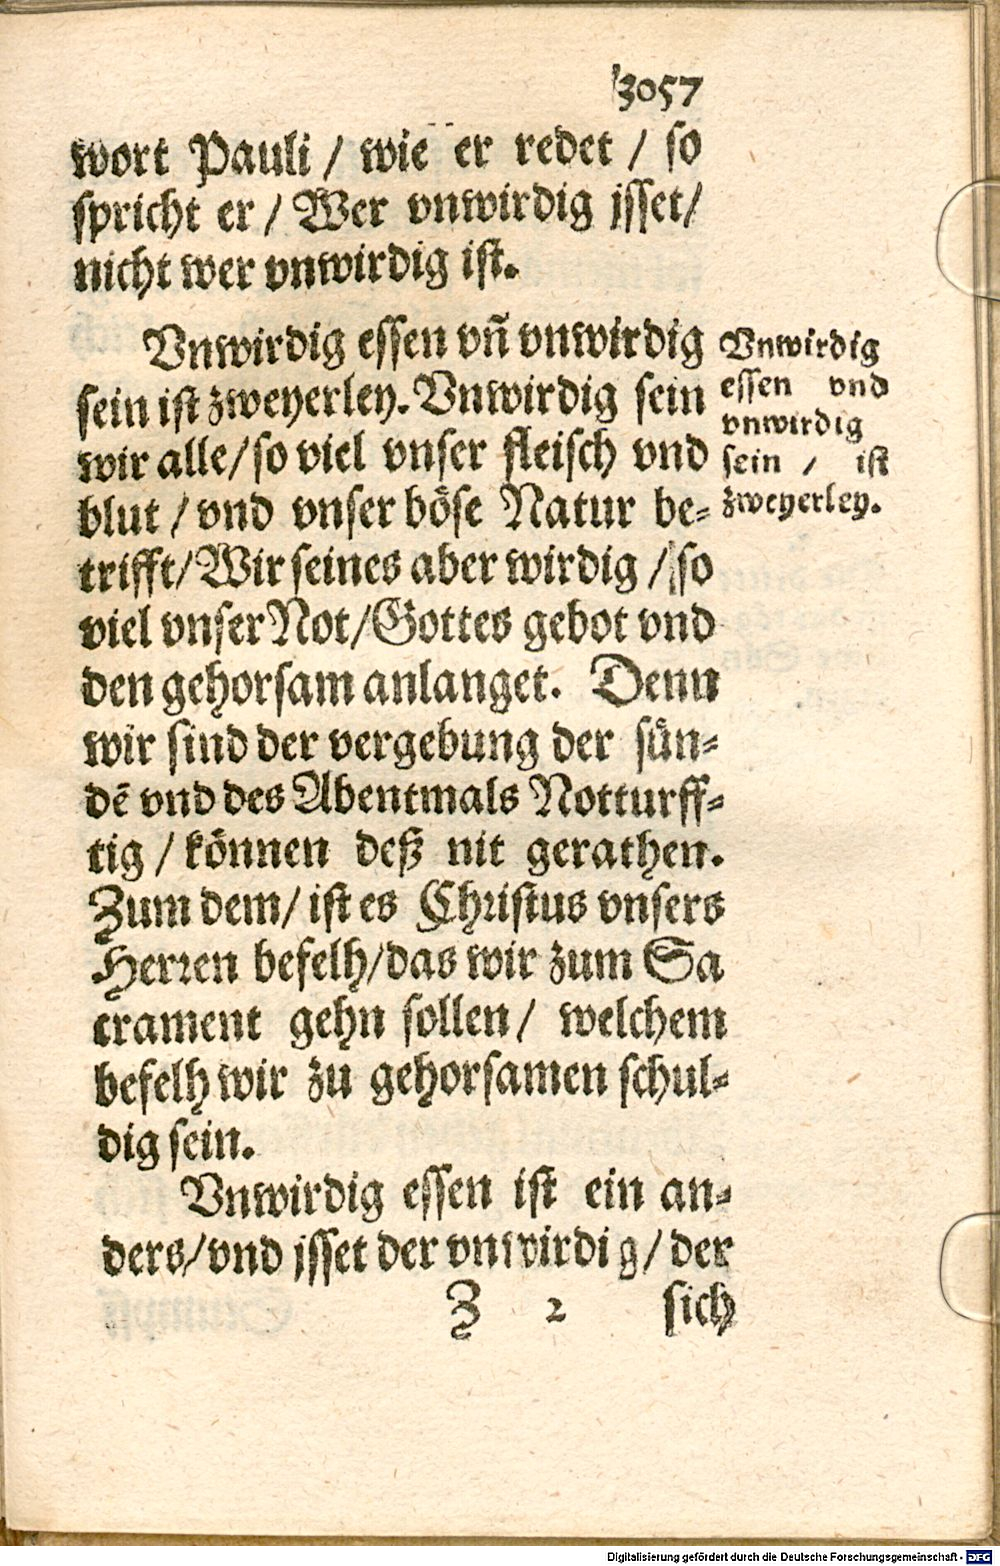 3057
wort Pauli / wie er redet / so
spricht er / Wer vnwirdig jsset/
nicht wer vnwirdig ist.
Vnwirdig essen vñ vnwirdig
sein ist zweyerley. Vnwirdig sein
wir alle/ so viel vnser fleisch vnd
blut / vnd vnser böse Natur be-
trifft/ Wir seines aber wirdig / so
viel vnser Not/ Gottes gebot vnd
den gehorsam anlanget. Denn
wir sind der vergebung der sün-
dē vnd des Abentmals Notturff-
tig / können deß nit gerathen.
Zum dem/ ist es Christus vnsers
Herren befelh/ das wir zum Sa
crament gehn sollen/ welchem
befelh wir zu gehorsamen schul-
dig sein.
Vnwirdig essen ist ein an-
ders/ vnd jsset der vnwirdig/ der
Z 2 sich
Vnwirdig
essen vnd
vnwirdig
sein / ist
zweyerley.
Digitalisierung gefördert durch die Deutsche Forschungsgemeinschaft - DFG